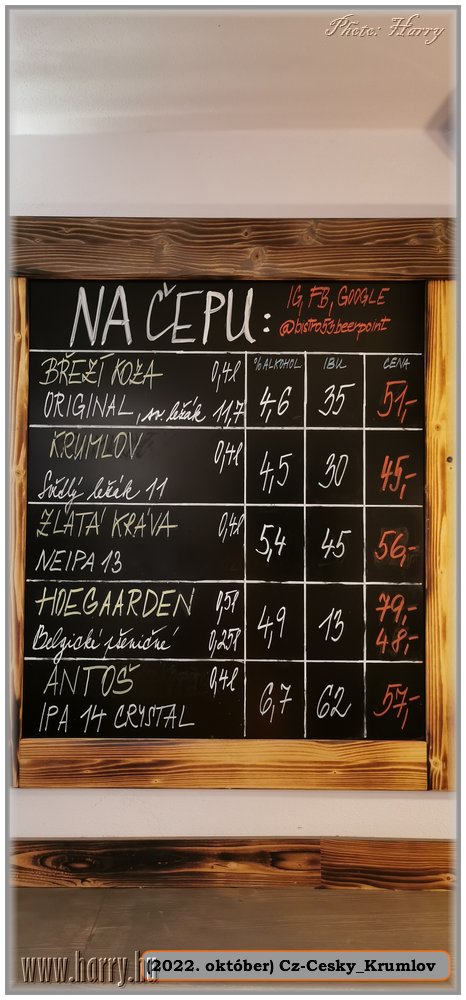 Photo: Harry
NA ČEPU:
IG, FB, GOOGLE
@bistro53beerpoint
% ALKOHOL IBU CENA
BŘEZÍ KOZA 0,4l
ORIGINAL, sv. ležák 11,7 4,6 35 51,-
KRUMLOV 0,4l
Světlý ležák 11 4,5 30 45,-
ZLATÁ KRÁVA 0,4l
NEIPA 13 5,4 45 56,-
HOEGAARDEN 0,5l 79,-
Belgické pšeničné 0,25l 4,9 13 48,-
ANTOŠ 0,4l
IPA 14 CRYSTAL 6,7 62 57,-
www.harry.hu
(2022. október) Cz-Cesky_Krumlov